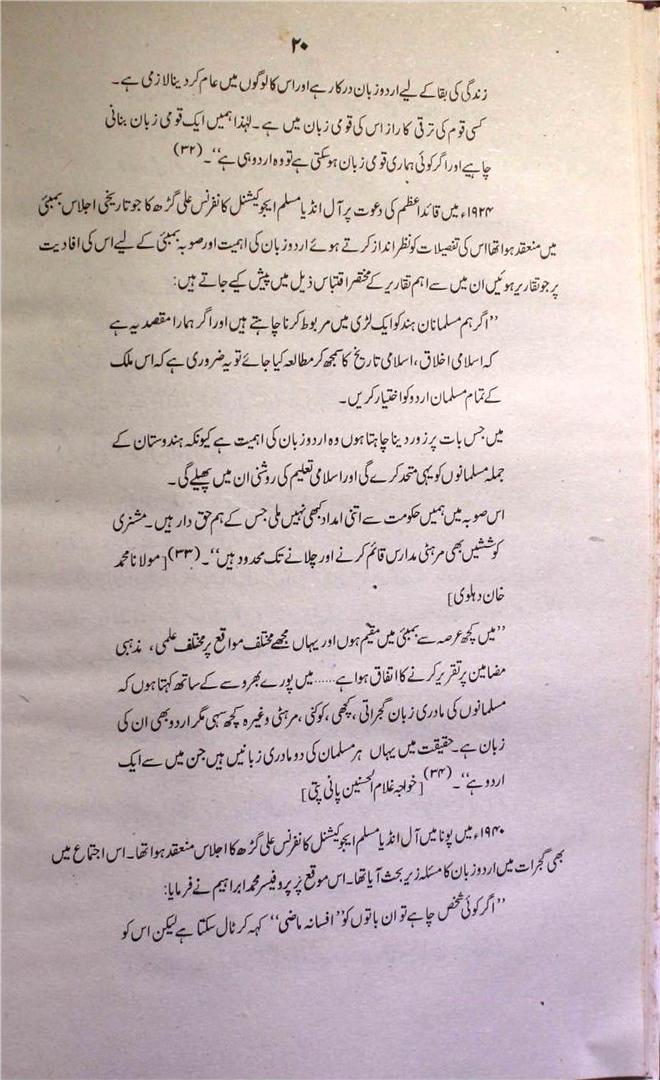 ۲۰
زندگی کی بقا کے لیے اردو زبان درکار ہے اور اس کا لوگوں میں عام کر دینا لازمی ہے۔
کسی قوم کی ترقی کا راز اس کی قومی زبان میں ہے۔ لہٰذا ہمیں ایک قومی زبان بنانی
چاہیے اور اگر کوئی ہماری قومی زبان ہو سکتی ہے تو وہ اردو ہی ہے‘‘۔ (۳۲)
۱۹۲۴ء میں قائد اعظم کی دعوت پر آل انڈیا مسلم ایجوکیشنل کانفرنس علی گڑھ کا جو تاریخی اجلاس بمبئی
میں منعقد ہوا تھا اس کی تفصیلات کو نظر انداز کرتے ہوئے اردو زبان کی اہمیت اور صوبہ بمبئی کے لیے اس کی افادیت
پر جو تقاریر ہوئیں ان میں سے اہم تقاریر کے مختصر اقتباس ذیل میں پیش کیے جاتے ہیں:
’’اگر ہم مسلمانان ہند کو ایک لڑی میں مربوط کرنا چاہتے ہیں اور اگر ہمارا مقصد یہ ہے
کہ اسلامی اخلاق، اسلامی تاریخ کا سمجھ کر مطالعہ کیا جائے تو یہ ضروری ہے کہ اس ملک
کے تمام مسلمان اردو کو اختیار کریں۔
میں جس بات پر زور دینا چاہتا ہوں وہ اردو زبان کی اہمیت ہے کیونکہ ہندوستان کے
جملہ مسلمانوں کو یہی متحد کرے گی اور اسلامی تعلیم کی روشنی ان میں پھیلے گی۔
اس صوبہ میں ہمیں حکومت سے اتنی امداد کبھی نہیں ملی جس کے ہم حق دار ہیں۔ مشنری
کوششیں بھی مرہٹی مدارس قائم کرنے اور چلانے تک محدود ہیں‘‘۔ (۳۳) [مولانا محمد
خان دہلوی]
’’میں کچھ عرصہ سے بمبئی میں مقیم ہوں اور یہاں مجھے مختلف مواقع پر مختلف علمی، مذہبی
مضامین پر تقریر کرنے کا اتفاق ہوا ہے...... میں پورے بھروسے کے ساتھ کہتا ہوں کہ
مسلمانوں کی مادری زبان گجراتی، کچھی، کوکنی، مرہٹی وغیرہ کچھ سہی مگر اردو بھی ان کی
زبان ہے۔ حقیقت میں یہاں ہر مسلمان کی دو مادری زبانیں ہیں جن میں سے ایک
اردو ہے‘‘۔ (۳۴) [خواجہ غلام الحسنین پانی پتی]
۱۹۴۰ء میں پونا میں آل انڈیا مسلم ایجوکیشنل کانفرنس علی گڑھ کا اجلاس منعقد ہوا تھا۔ اس اجتماع میں
بھی گجرات میں اردو زبان کا مسئلہ زیر بحث آیا تھا۔ اس موقع پر پروفیسر محمد ابراہیم نے فرمایا:
’’اگر کوئی شخص چاہے تو ان باتوں کو ’’افسانہ ماضی‘‘ کہہ کر ٹال سکتا ہے لیکن اس کو